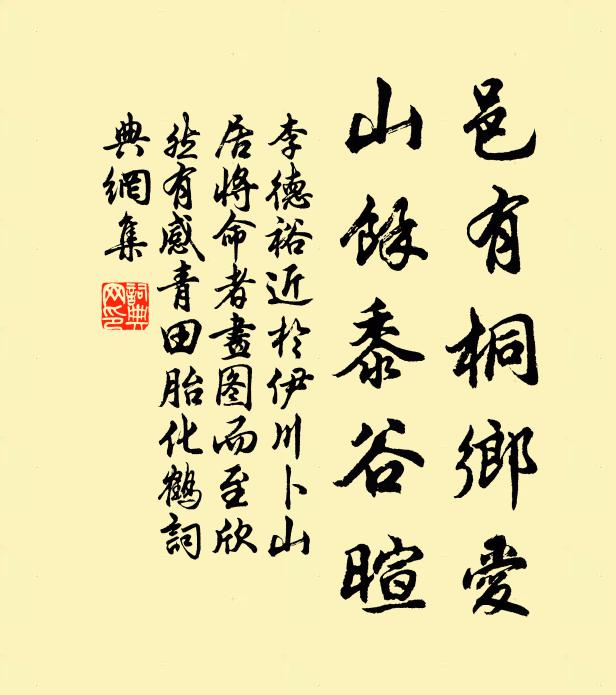 邑有桐鄉愛
山餘黍谷暄
李德裕近於伊川卜山
居將命者畫图而至欣
然有感青田胎化鶴詞
典網集
詞典
网印